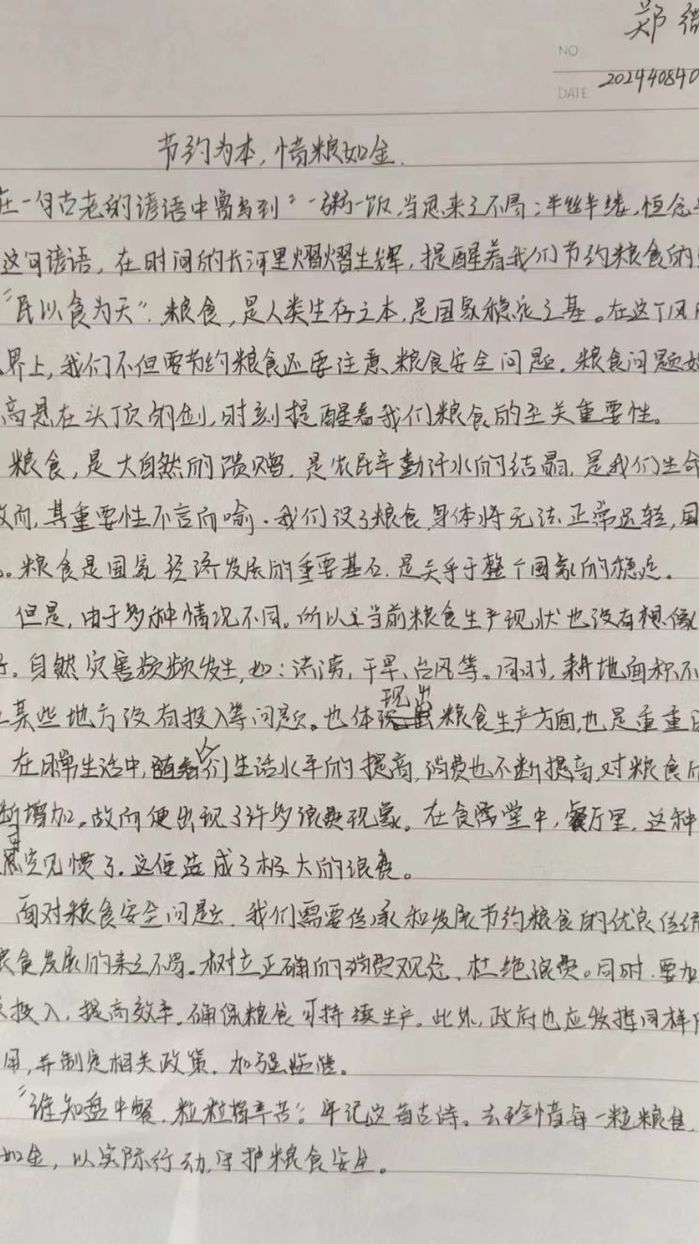 郑
NO
DATE 202440840
节约为本,惜粮如金.
在一句古老的谚语中曾写到:"一粥一饭,当思来之不易;半丝半缕,恒念
这句谚语,在时间的长河里熠熠生辉,提醒着我们节约粮食的
"民以食为天".粮食,是人类生存之本,是国家稳定之基。在这个风
界上,我们不但要节约粮食还要注意粮食安全问题.粮食问题如
高悬在头顶的剑,时刻提醒着我们粮食的至关重要性。
粮食,是大自然的馈赠,是农民辛勤汗水的结晶,是我们生命
故而,其重要性不言而喻.我们没了粮食,身体将无法正常运轻,国
粮食是国家经济发展的重要基石.是关乎于整个国家的稳定。
但是,由于多种情况不同。所以当前粮食生产现状也没有想像
自然灾害频频发生,如:洪涝,干旱,台风等。同时,耕地面积不
某些地方没有投入等问题。也体现出粮食生产方面,也是重重
在日常生活中,随着人们生活水平的提高,消费也不断提高,对粮食的
断增加。故而便出现了许多浪费现象。在食堂中,餐厅里,这种
司空见惯了.这便造成了极大的浪费。
面对粮食安全问题.我们需要传承和发展节约粮食的优良传统
粮食发展的来之不易。树立正确的消费观念,杜绝浪费。同时.要加
投入,提高效率.确保粮食可持续生产。此外,政府也应发挥同样
用,并制定相关政策.加强监管。
"谁知盘中餐,粒粒皆辛苦".牢记这首古诗。去珍惜每一粒粮食.
如金,以实际行动,守护粮食安全。